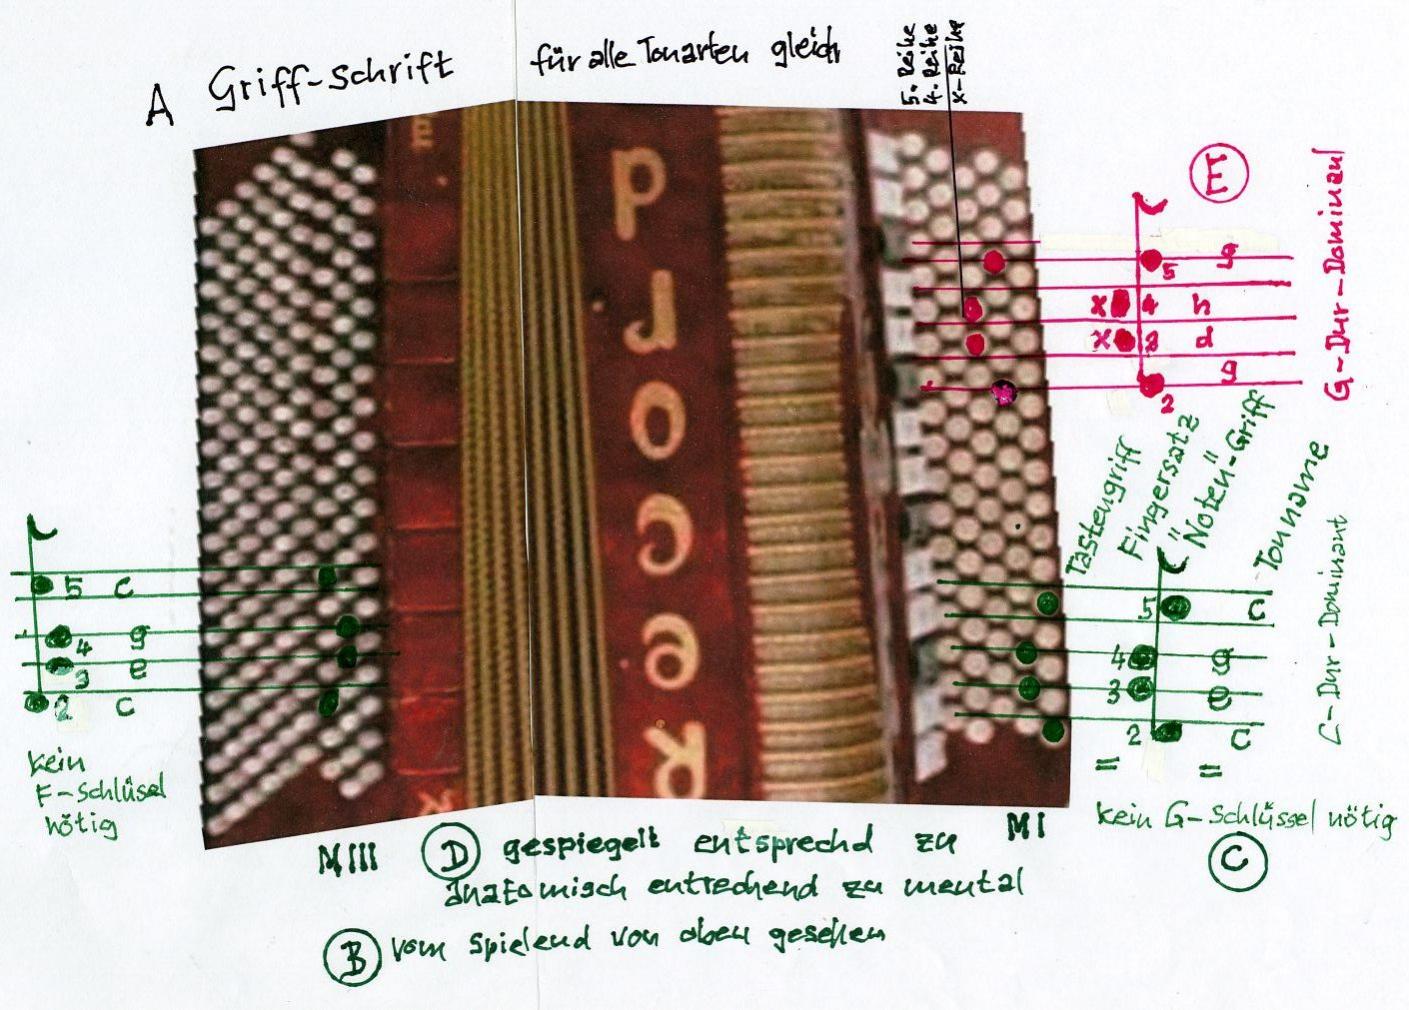 A Griff-Schrift für alle Tonarten gleich
5. Reihe
4. Reihe
x-Reihe
E
G-Dur-Dominant
5 g
x 4 h
x 3 d
2 g
Tastengriff
Fingersatz
"Noten"-Griff
Tonname
C-Dur-Dominant
5 C
4 g
3 e
2 C
=
=
kein G-Schlüssel nötig
C
5 c
4 g
3 e
2 c
kein
F-Schlüsel
nötig
MIII
MI
D gespiegelt entsprechd zu
anatomisch entrechend zu mental
B vom Spielend von oben gesehen